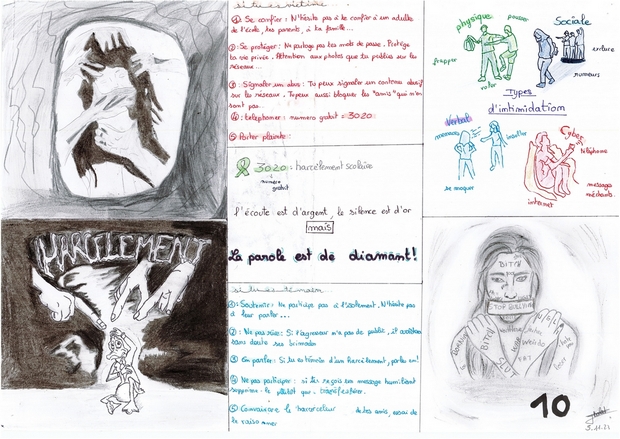 si tu es victime
① Se confier : N'hésite pas à te confier à un adulte
de l'école, tes parents, à ta famille...
② Se protéger : Ne partage pas tes mots de passe. Protège
ta vie privée. Attention aux photos que tu publies sur les
réseaux...
③ : Signaler un abus : Tu peux signaler un contenu abusif
sur les réseaux. Tu peux aussi bloquer les "amis" qui n'en
sont pas.
④ : telephoner : numero gratuit = 3020.
⑤ Porter plainte.
3020 : harcèlement scolaire
numéro
gratuit
l'écoute est d'argent, le silence est d'or
mais
La parole est de diamant!
si tu es témoin
① : Soutenir : Ne participe pas à l'isolement. N'hésite pas
à leur parler...
② : Ne pas rire : Si l'agresseur n'a pas de public, il
sans doute ses brimades
③ En parler : Si tu es témoin d'un harcèlement, parles en!
④ Ne pas participer : si tu reçois un message humiliant
supprime-le plutôt que
⑤ Convaincre le harceleur de tes amis, essai de
le raisonner
physique
pousser
frapper
voler
Sociale
exclure
rumeurs
Types
d'intimidation
Verbal
menaces
insulter
se moquer
Cyber
téléphone
messages
méchants
internet
HARCELEMENT
BITCH
STOP BULLYING
BITCH
SLUT
FAT
10